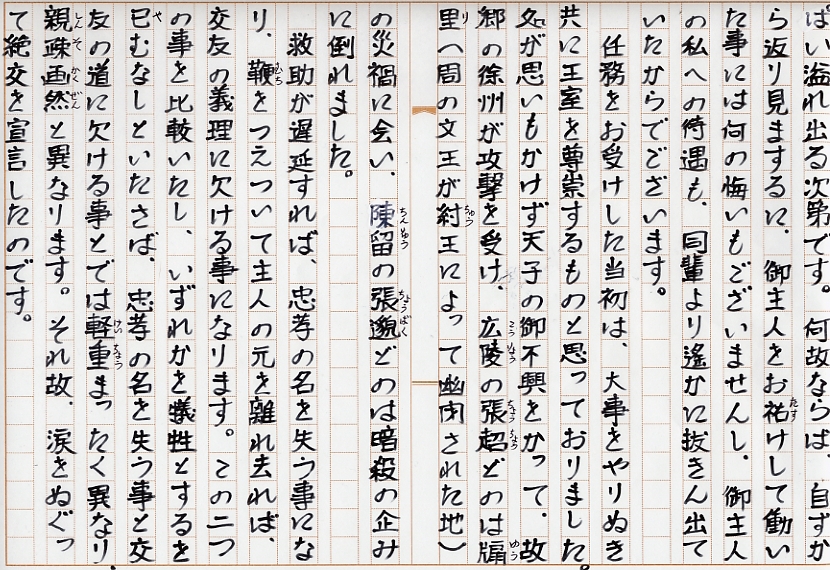 ぱい溢れ出る次第です。何故ならば、自ずか
ら返り見まするに、御主人をお祐けして働い
た事には何の悔いもございませんし、御主人
の私への待遇も、同輩より遙かに抜きん出て
いたからでございます。
任務をお受けした当初は、大事をやりぬき
共に王室を尊崇するものと思っておりました。
処が思いもかけず天子の御不興をかって、故
郷の徐州が攻撃を受け、広陵の張超どのは牖
里へ周の文王が紂王によって幽閉された地)
の災禍に会い、陳留の張邈どのは暗殺の企み
に倒れました。
救助が遅延すれば、忠孝の名を失う事にな
り、鞭をつえついて主人の元を離れ去れば、
交友の義理に欠ける事になります。この二つ
の事を比較いたし、いずれかを犠牲とするを
已むなしといたさば、忠孝の名を失う事と交
友の道に欠ける事とでは軽重まったく異なり、
親疎画然と異なります。それ故、涙をぬぐっ
て絶交を宣言したのです。